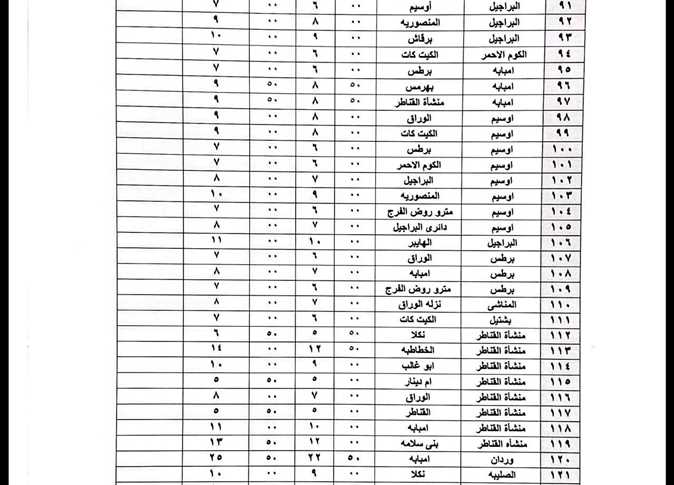 ٩١ البراجيل أوسيم ٠٠ ٦ ٠٠ ٧
٩٢ البراجيل المنصوريه ٠٠ ٨ ٠٠ ٩
٩٣ البراجيل برقاش ٠٠ ٩ ٠٠ ١٠
٩٤ الكوم الاحمر الكيت كات ٠٠ ٦ ٠٠ ٧
٩٥ امبابه برطس ٠٠ ٦ ٠٠ ٧
٩٦ امبابه بهرمس ٥٠ ٨ ٥٠ ٩
٩٧ امبابه منشأة القناطر ٥٠ ٨ ٥٠ ٩
٩٨ اوسيم الوراق ٠٠ ٨ ٠٠ ٩
٩٩ اوسيم الكيت كات ٠٠ ٨ ٠٠ ٩
١٠٠ اوسيم برطس ٠٠ ٦ ٠٠ ٧
١٠١ اوسيم الكوم الاحمر ٠٠ ٦ ٠٠ ٧
١٠٢ اوسيم البراجيل ٠٠ ٧ ٠٠ ٨
١٠٣ اوسيم المنصوريه ٠٠ ٩ ٠٠ ١٠
١٠٤ اوسيم مترو روض الفرج ٠٠ ٦ ٠٠ ٧
١٠٥ اوسيم دائرى البراجيل ٠٠ ٧ ٠٠ ٨
١٠٦ البراجيل الهايبر ٠٠ ١٠ ٠٠ ١١
١٠٧ برطس الوراق ٠٠ ٦ ٠٠ ٧
١٠٨ برطس امبابه ٠٠ ٧ ٠٠ ٨
١٠٩ برطس مترو روض الفرج ٠٠ ٦ ٠٠ ٧
١١٠ المناشى نزله الوراق ٠٠ ٧ ٠٠ ٨
١١١ بشتيل الكيت كات ٠٠ ٦ ٠٠ ٧
١١٢ منشأة القناطر نكلا ٥٠ ٥ ٥٠ ٦
١١٣ منشأة القناطر الخطاطبه ٥٠ ١٢ ٠٠ ١٤
١١٤ منشأة القناطر ابو غالب ٠٠ ٩ ٠٠ ١٠
١١٥ منشأة القناطر ام دينار ٠٠ ٥ ٥٠ ٥
١١٦ منشأة القناطر الوراق ٠٠ ٧ ٠٠ ٨
١١٧ منشأة القناطر القناطر ٠٠ ٥ ٥٠ ٥
١١٨ منشأة القناطر امبابه ٠٠ ١٠ ٠٠ ١١
١١٩ منشأه القناطر بنى سلامه ٠٠ ١٢ ٥٠ ١٣
١٢٠ وردان امبابه ٥٠ ٢٢ ٥٠ ٢٥
١٢١ الصليبه نكلا ٠٠ ٩ ٠٠ ١٠